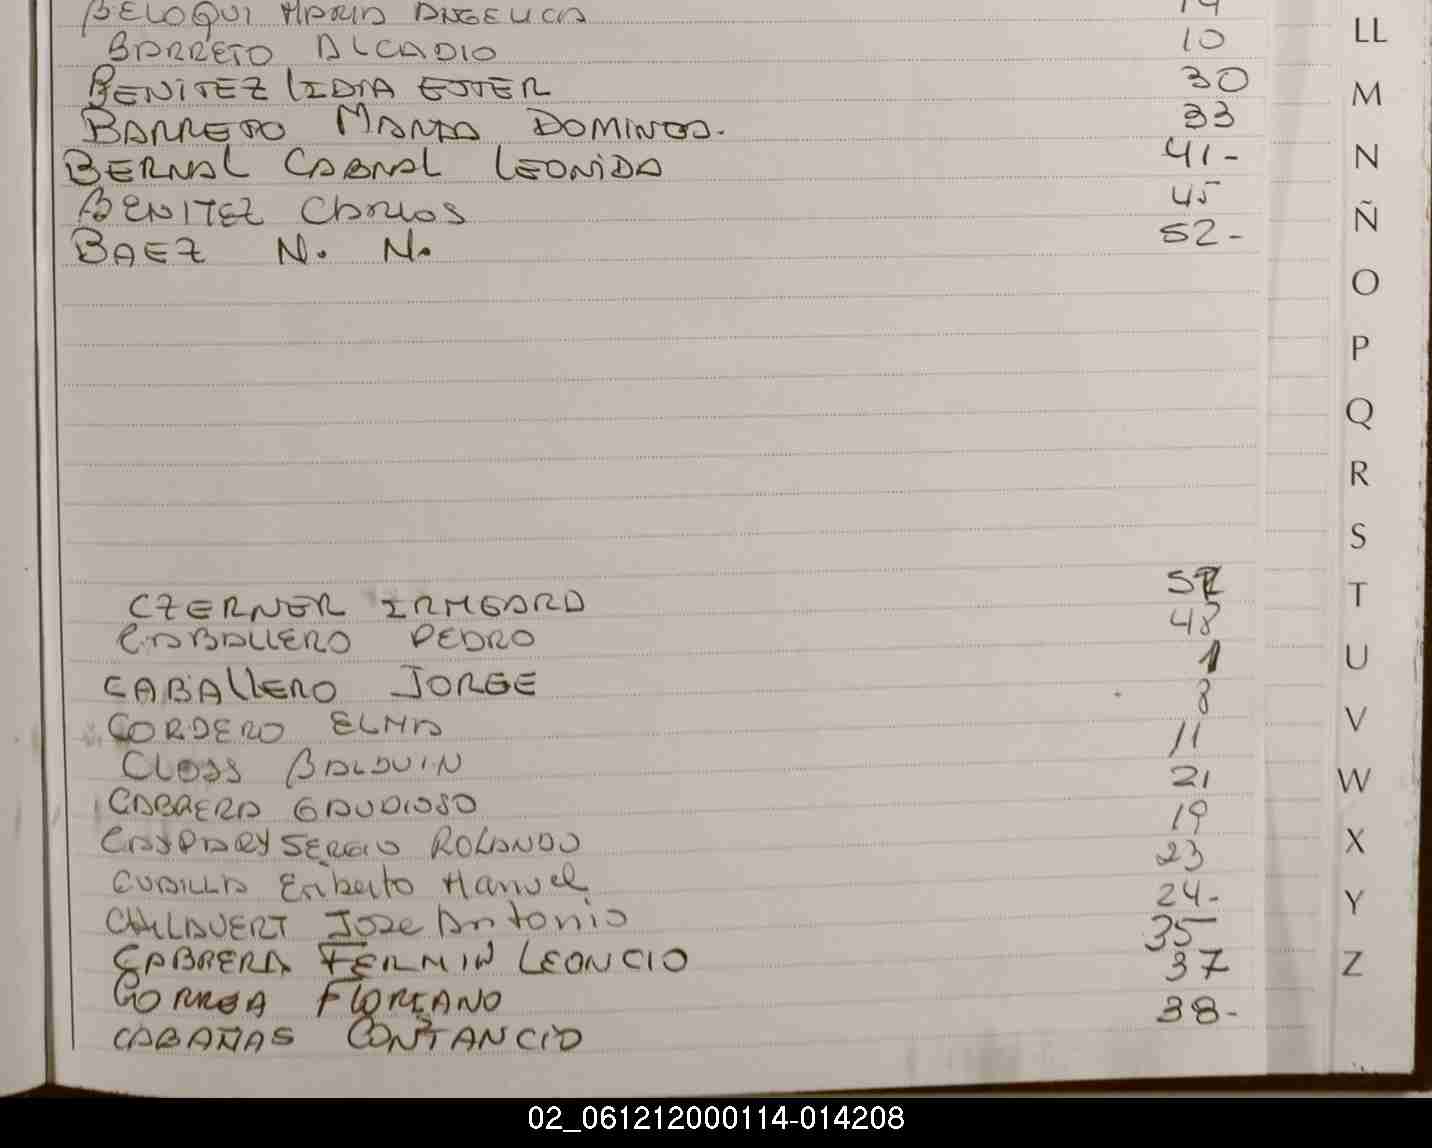 BELOQUI MARIA ANGELICA 14
BARRETO ALCADIO 10
BENITEZ LIDIA ESTER 30
BARRETO MARIA DOMINGA. 33
BERNAL CABRAL LEONIDA 41-
BENITEZ CARLOS 45
BAEZ N. N. 52-
CZERNER IRMGARD 52
CABALLERO PEDRO 48
CABALLERO JORGE 1
CORDERO ELMA 8
CLOSS BALDUIN 11
CABRERA GAUDIOSO 21
CASPARY SERGIO ROLANDO 19
CUBILLA Eriberto Manuel 23
CHILAVERT Jose Antonio 24-
CABRERA FERMIN LEONCIO 35
CORREA FLORIANO 37
CABAÑAS CONSTANCIO 38-
LL
M
N
Ñ
O
P
Q
R
S
T
U
V
W
X
Y
Z
02_061212000114-014208